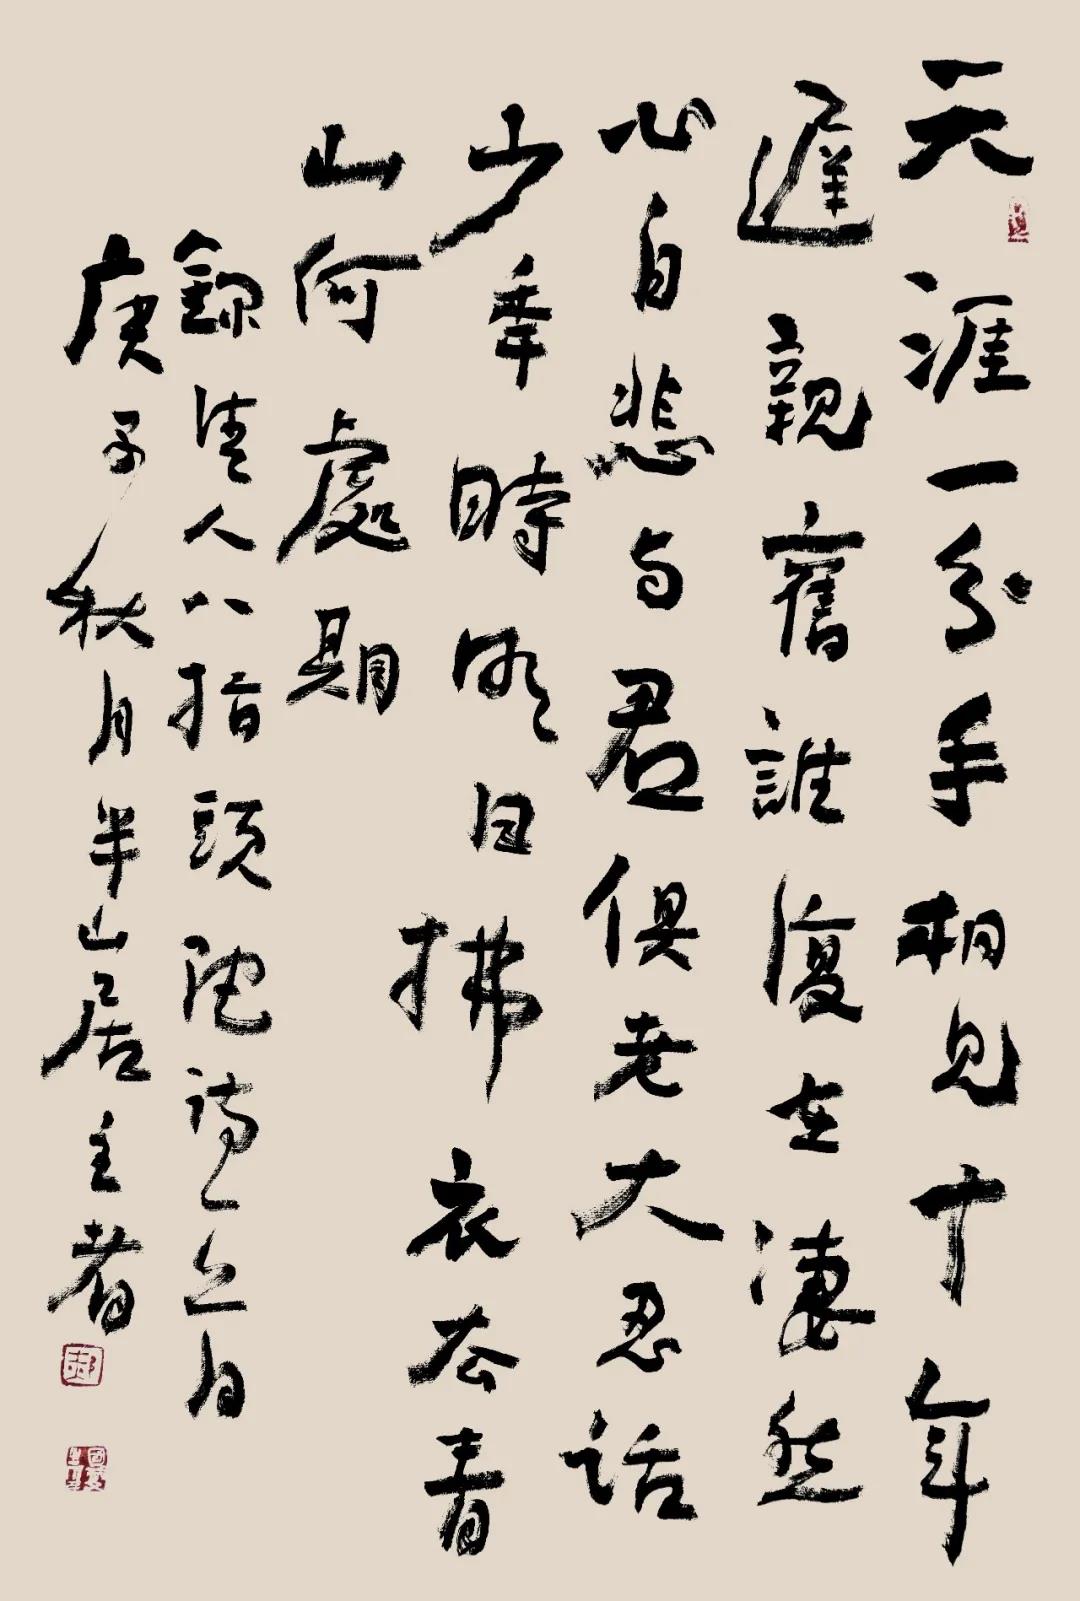 天涯一分手相見十年
遲親舊誰復在淒然
心自悲与君俱老大忍話
少年時明日拂衣去青
山何處期
錄清人八指頭陀詩一首
庚子秋月半山居主者